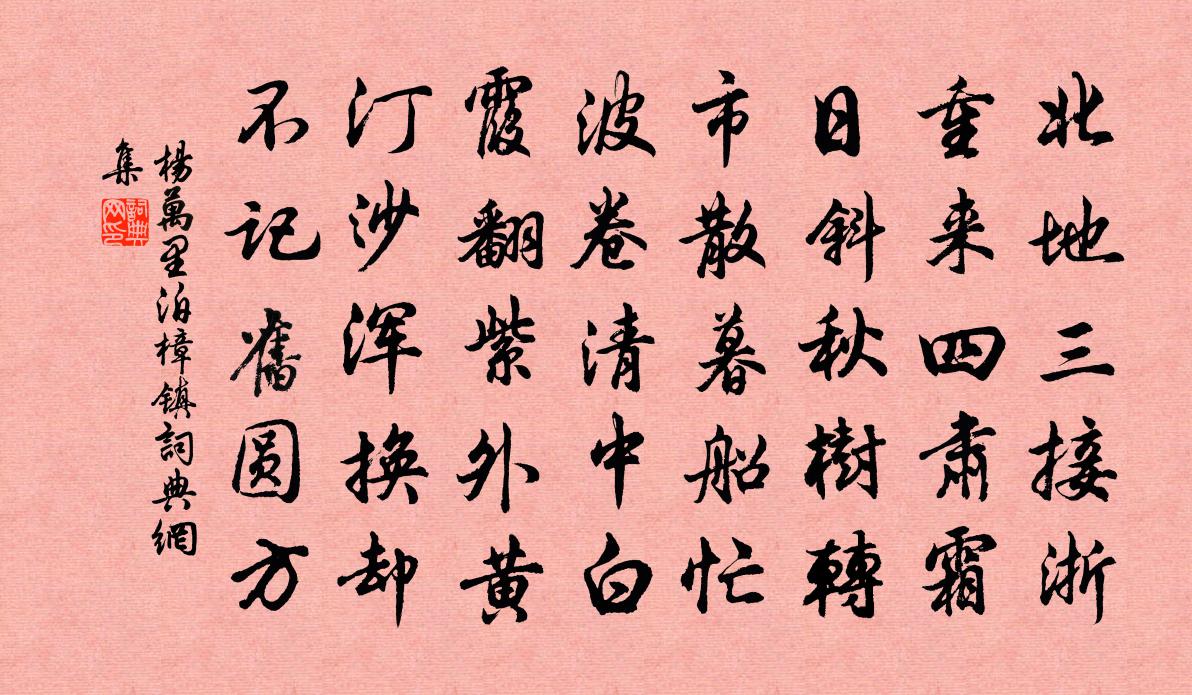 北地三接浙
重来四肃霜
日斜秋樹轉
市散暮船忙
波卷清中白
霞翻紫外黄
汀沙浑换却
不记舊圆方
楊萬里泊樟鎮詞典網
集
詞典网印